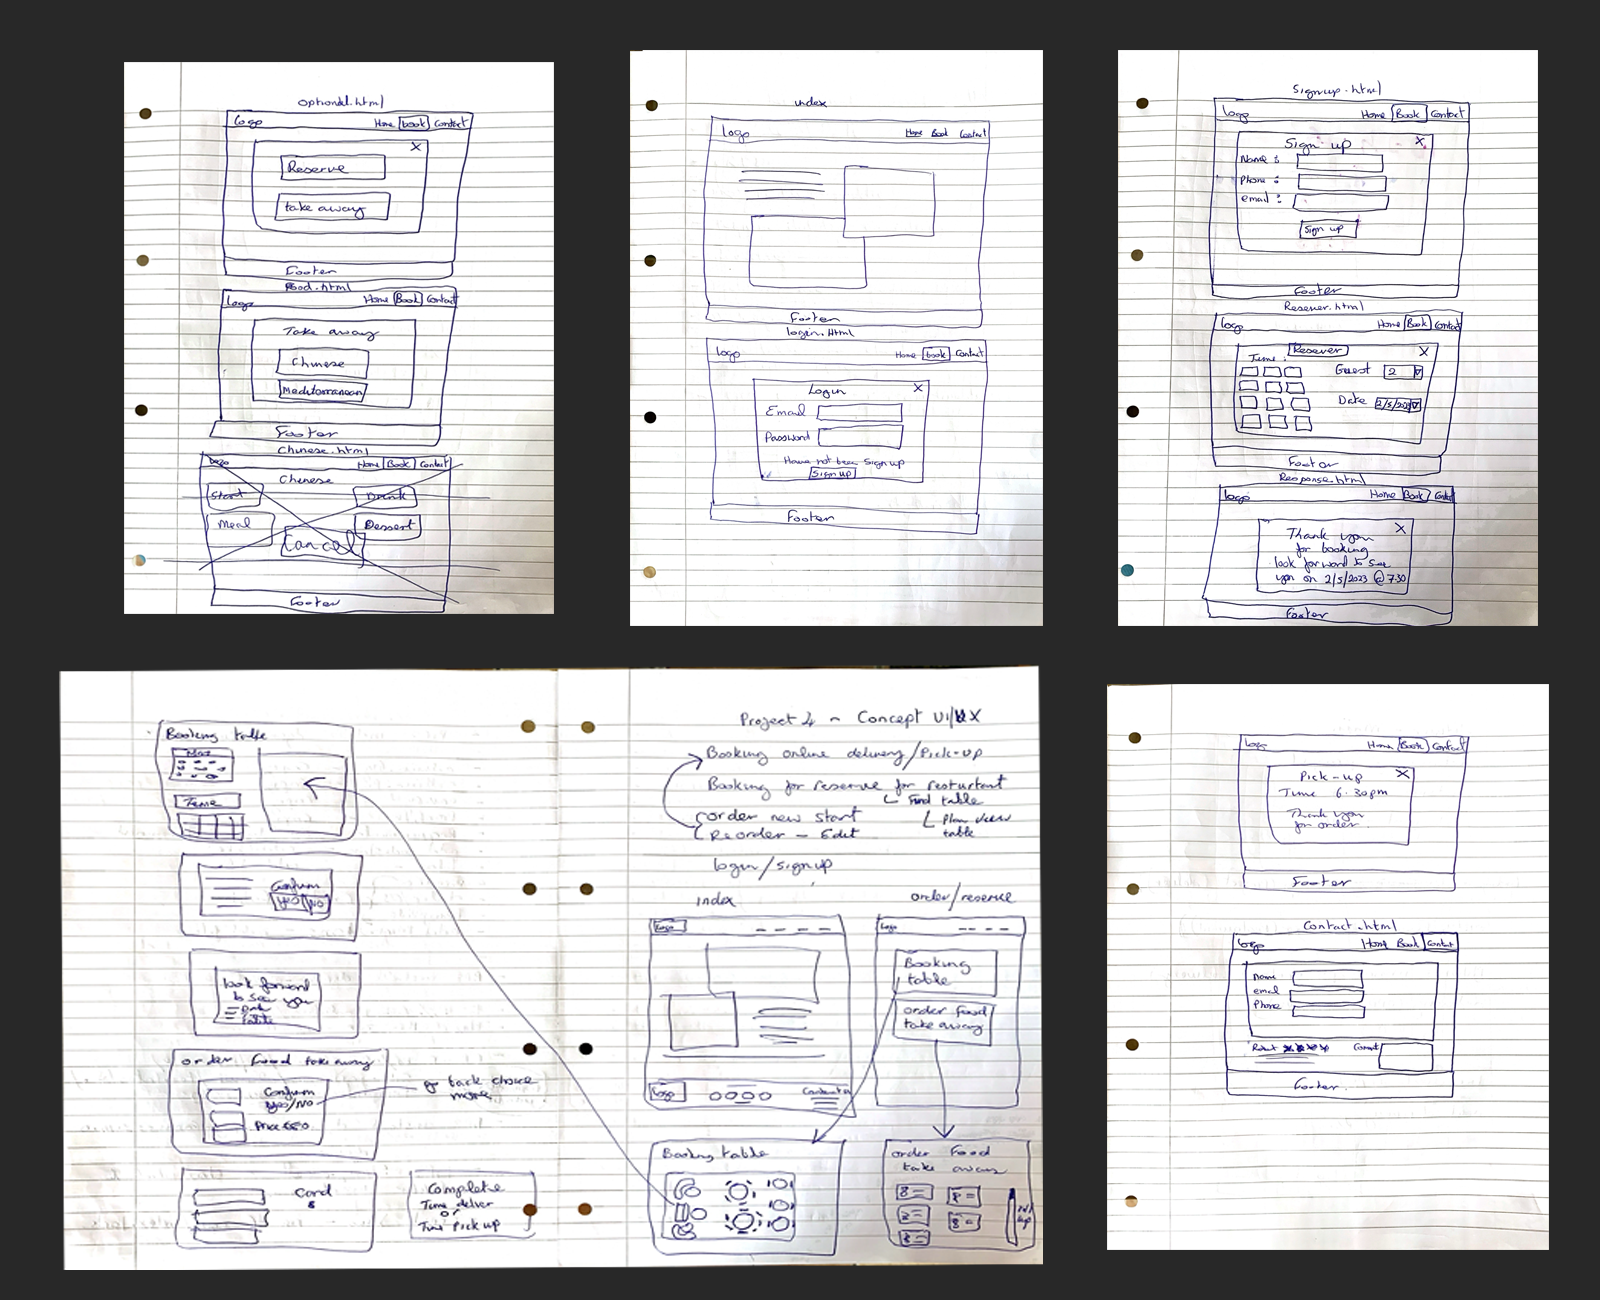 optional.html
Logo Home book Contact
X
Reserve
take away
Footer
Food.html
Logo Home Book Contact
Take away
Chinese
Mediterranean
Footer
Chinese.html
Logo Home Book Contact
Chinese
Start Drink
Meal Dessert
Cancel
Footer
index
Logo Home Book Contact
Footer
login.Html
logo Home book Contact
Login X
Email
Password
Have not been Sign up
Sign up
Footer
Signup.html
Logo Home Book Contact
Sign up X
Name :
Phone :
email :
Sign up
Footer
Reserver.html
Logo Home Book Contact
Reserver X
Time :
Guest 2
Date 2/5/2023
Footer
Response.html
Logo Home Book Contact
X
Thank you
for booking
look forward to see
you on 2/5/2023 @ 7:30
Footer
Booking table
Time
Confirm
yes/No
look forward
to see you
order food take away
Confirm
yes/No
Price £50
or back choice
more
Card
Complete
Time deliver
or
Time Pick up
Project 4 ~ Concept UI/UX
Booking online delivery/Pick-up
Booking for reserve for resturtant
Find table
order new start
Plan view
table
Reorder - Edit
login/signup
index
order/reserve
Logo
Logo
Booking
table
order food
take away
Logo
Contact
Booking table
order Food
take away
Logo Home Book Contact
Pick-up X
Time 6.30pm
Thank you
for order
Footer
Contact.html
Logo Home Book Contact
name
email
Phone
Footer